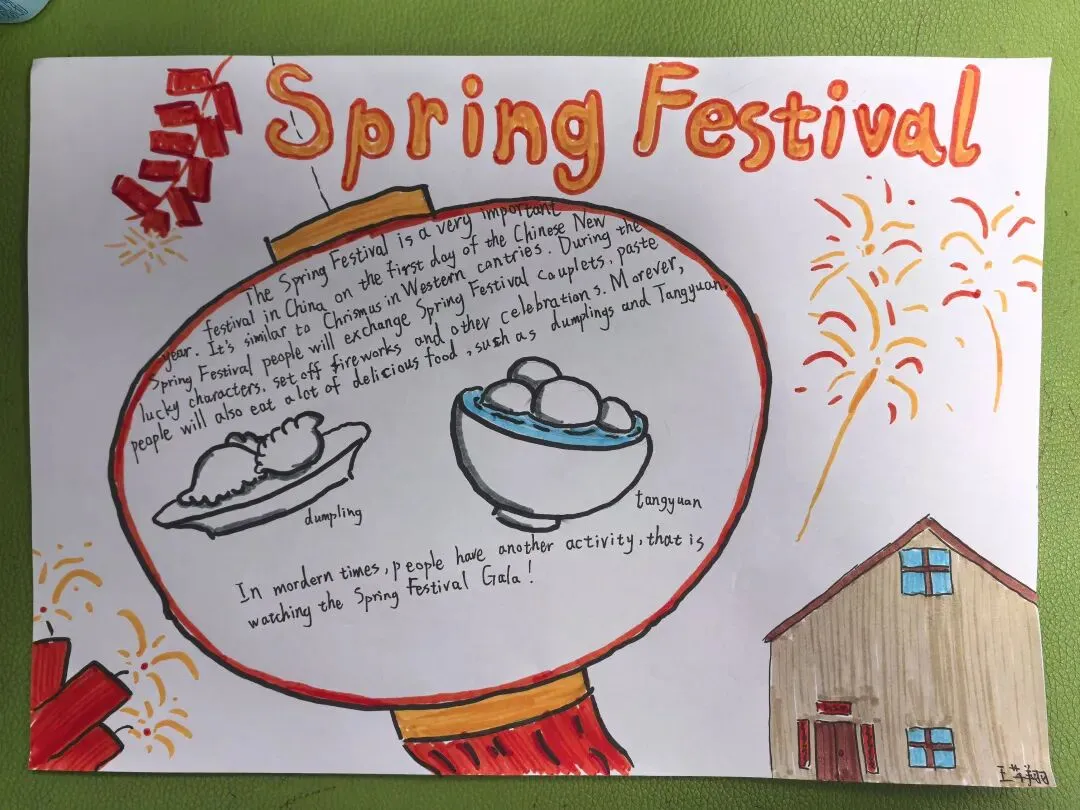 Spring Festival
The Spring Festival is a very important
festival in China on the first day of the Chinese New
year. It's similar to Chrismus in Western cantries. During the
Spring Festival people will exchange Spring Festival couplets, paste
lucky characters, set off fireworks and other celebrations. Morever,
people will also eat a lot of delicious food, such as dumplings and Tangyuan.
dumpling
tangyuan
In mordern times, people have another activity, that is
watching the Spring Festival Gala!